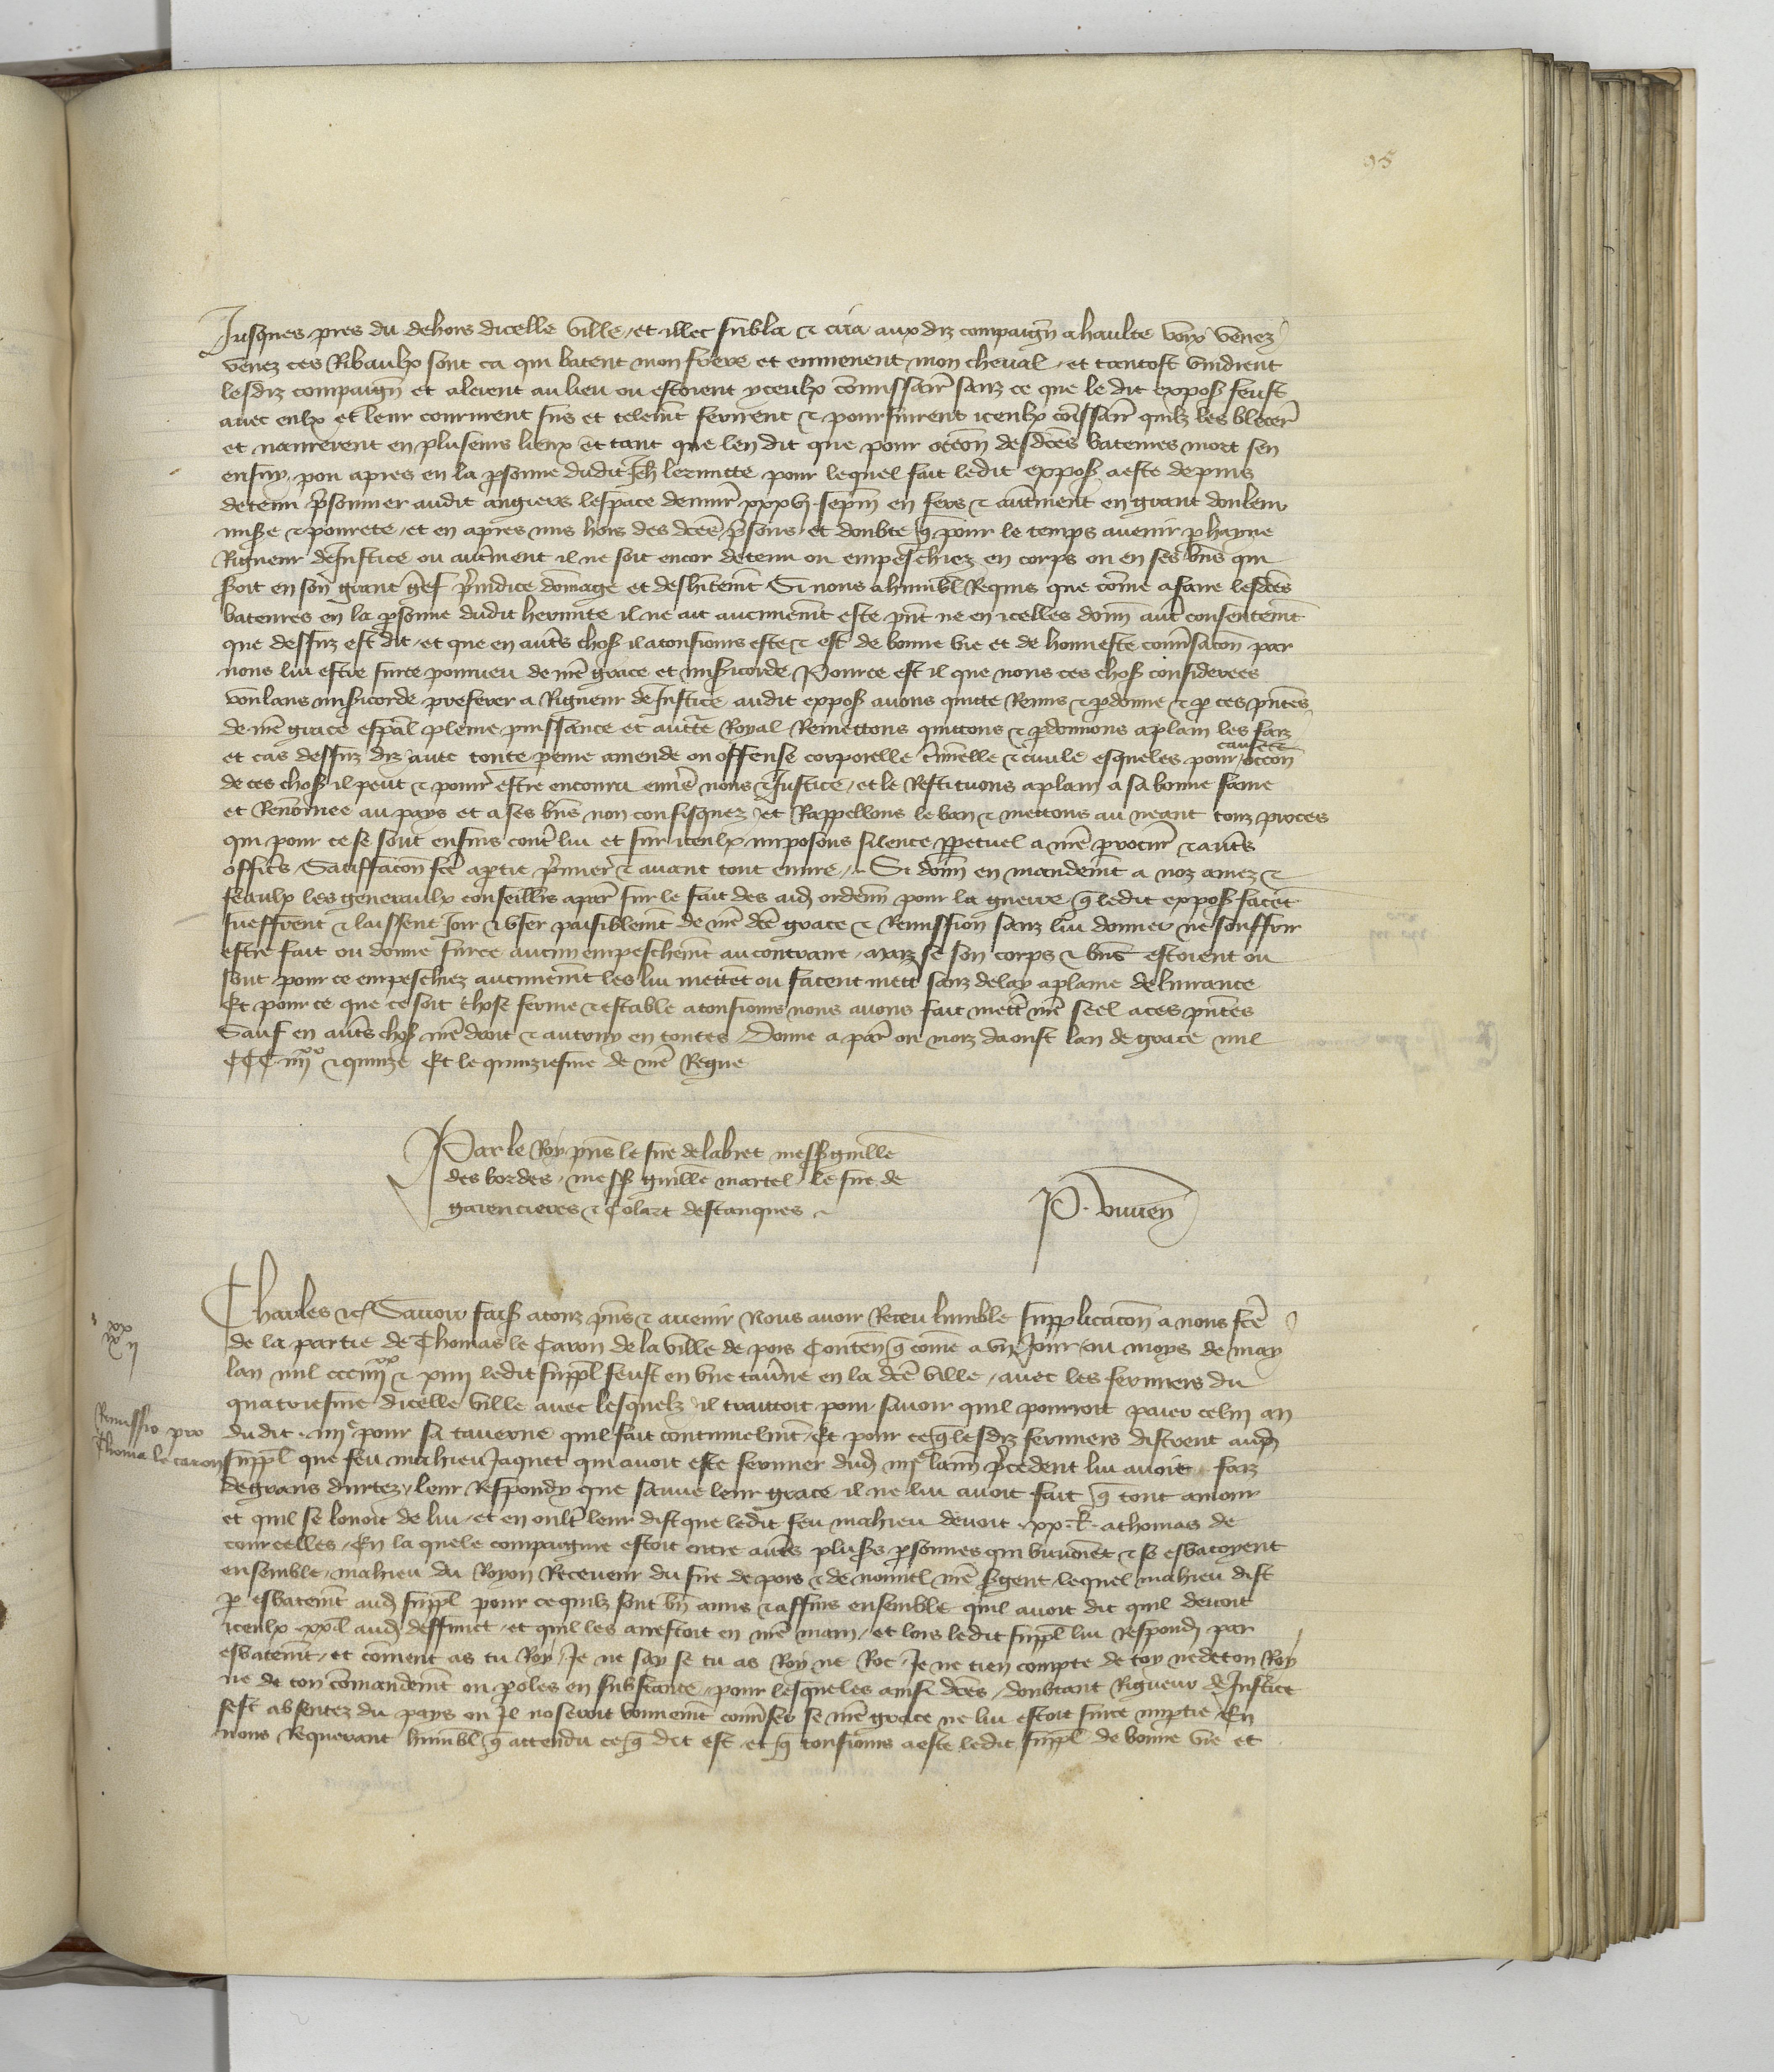 95
Jusques pres du dehors dicelle ville / et illec subla & cria aux diz compaign a haulte voix venez
venez ces Ribaulx sont ca qui batent mon frere et enmenent mon cheval / et tantost vindrent
lesdiz compaign et alerent au lieu ou estoient yceulx comissair sanz ce que le dit expos feust
avec eulx et leur coururent sus et telemt ferirent & poursuirent iceulx comissair quilz les blecer
et navrerent en pluseurs lieux et tant que len dit que pour occon desdces bateures mort sen
ensuy pou apres en la psonne dudit Jeh lermitte pour lequel fait ledit expos a este depuis
detenu prisonnier audit angiers lespace denvir xxxvj sepm en fers & autment en grant douleur
mise & povrete / et en apres mis hors des dces prisons / et doubte q pour le temps avenir p hayne
Rigueur de Justice ou autment il ne soit encor detenu ou empeschiez en corps ou en ses bns qui
soit en son grant gref preiudice domage et desheritemt Si nous a humbl Requis que come a faire lesdces
bateures en la psonne dudit hermite il ne ait aucunemt este pnt ne en icelles donn aut consentemt
que dessuz est dit / et que en auts chos il a tousiours este & est de bonne vie et de honneste conversacon par
nous lui estre surce pourveu de nre grace et misicorde Pource est il que nous ces chos considerees
voulans misicorde preferer a Rigueur de Justice audit expos avons quitte Remis & pdonne & p ces pntes
de nre grace espal pleine puissance et auttE Royal Remettons quittons & pdonnons a plain les faiz
et cas dessuz diz avec toute peine amende ou offense corporelle criminelle & civile esqueles pour cause & occon
de ces chos il peut & pourr estre encouru envrs nous & Justice / et le Restituons a plain a sa bonne fame
et Renomee au pays et a ses bns non confisquez et Rappellons le ban & mettons au neant touz proces
qui pour ce se sont ensuis contr lui et sur iceulx imposons silence perpetuel a nre procur & auts
offics / Satiffacon fce a ptie primier & avant tout euvre / Si donn en mandemt a noz amez &
feaulx les generaulx conseillrs a par sur le fait des aid ordenn pour la guerre q ledit expos facent
sueffrent & laissent Joir & user paisiblemt de nre dce grace & Remission sanz lui donner ne souffrir
estre fait ou donne surce aucun empeschemt au contraire / Maiz se son corps & bns estoient ou
sont pour ce empeschiez aucunemt les lui mettet ou facent mett sanz delay a plaine delivrance
Et pour ce que ce soit chose ferme & estable a tousiours nous avons fait mettr nre seel a ces pntes
Sauf en auts chos nre droit & autruy en toutes / Donne a par ou mois daoust lan de grace mil
CCC iiijxx & quinze Et le quinziesme de nre Regne
Par le Roy pns le sire delabret mess guille
des bordes / mess guille martel le sire de
garencieres & Colart destanques
P. vivien
Charles & Savoir faiss a touz pns & avenir Nous avoir Receu lumble supplicacon a nous fce
de la partie de Thomas le Caron de la ville de pois Conten q come a un Jour ou moys de may
lan mil ccciiijxx & xiiij ledit suppl feust en une taverne en la dce ville / avec les fermiers du
quatriesme dicelle ville avec lesquelz il traittoit pour savoir quil pourroit paier celui an
dudit iiije pour sa taverne quil fait continuelmt / Et pour ce q lesdiz fermiers distrent aud
suppl que feu mahieu Jaquet qui avoit este fermier dud iiije lann precedent lui avoit faiz
de grans durtez / leur Respondy que sauve leur grace il ne lui avoit fait q tout amour
et quil se louoit de lui / et en oultr leur dist que ledit feu mahieu devoit xx £ a thomas de
courcelles / En la quele compaignie estoit entre auts pluss psonnes qui buvoient & se esbatoyent
ensemble / mahieu du Royon Receveur du sire de pois & de nouvel nre sgent / lequel mahieu dist
p esbatemt aud suppl pour ce quilz sont bn amis & affins ensemble quil avoit dit quil devoit
iceulx xx l aud deffunct / et quil les arrestoit en nre main / et lors ledit suppl lui respond par
esbatemt / et coment as tu Roy / Je ne say se tu as Roy ne Roc / Je ne tien compte de toy ne de ton Roy
ne de ton comandemt ou poles en substance / pour lesqueles ainsi dces / doubtant Rigueur de Justice
sest absentez du pays ou Jl noseroit bonnemt converser se nre grace ne lui estoit surce imptie / En
nous Requerant humbl q attendu ce q dit est / et q tousiours a este ledit suppl de bonne vie et
Remissio pro
Thoma le caron